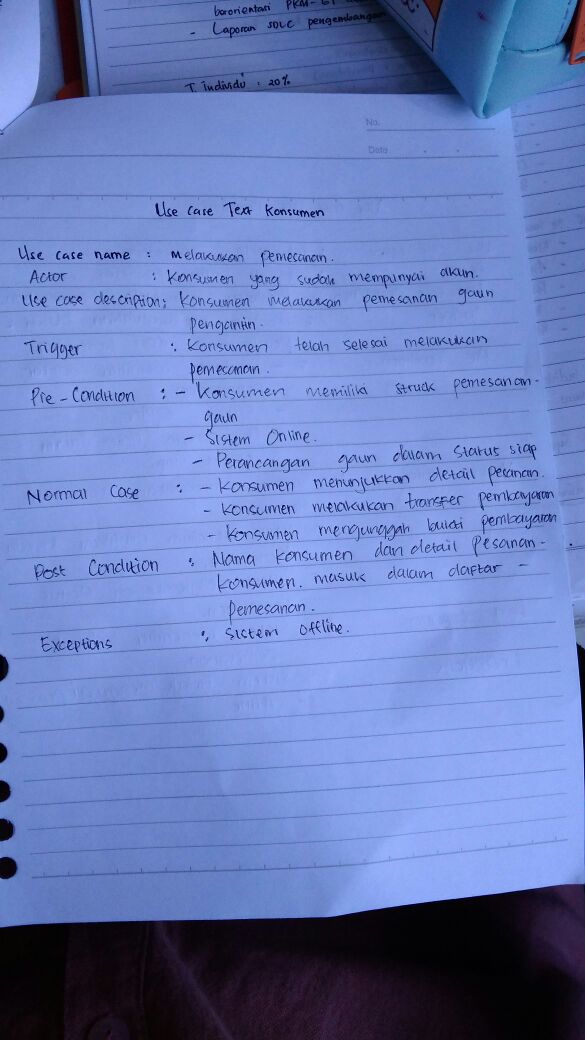 berorientasi PKM-
- Laporan SDLC pengembangan
T. Individu : 20%
No.
Date
Use Case Text Konsumen
Use case name : Melakukan pemesanan.
Actor : Konsumen yang sudah mempunyai akun.
Use case description : Konsumen melakukan pemesanan gaun
pengantin.
Trigger : Konsumen telah selesai melakukan
pemesanan.
Pre-Condition : - Konsumen memiliki struck pemesanan-
gaun
- Sistem Online.
- Perancangan gaun dalam status siap
Normal Case : - Konsumen menunjukkan detail pesanan.
- Konsumen melakukan transfer pembayaran
- Konsumen mengunggah bukti pembayaran
Post Condition : Nama konsumen dan detail Pesanan-
konsumen. masuk dalam daftar -
pemesanan.
Exceptions : Sistem offline.